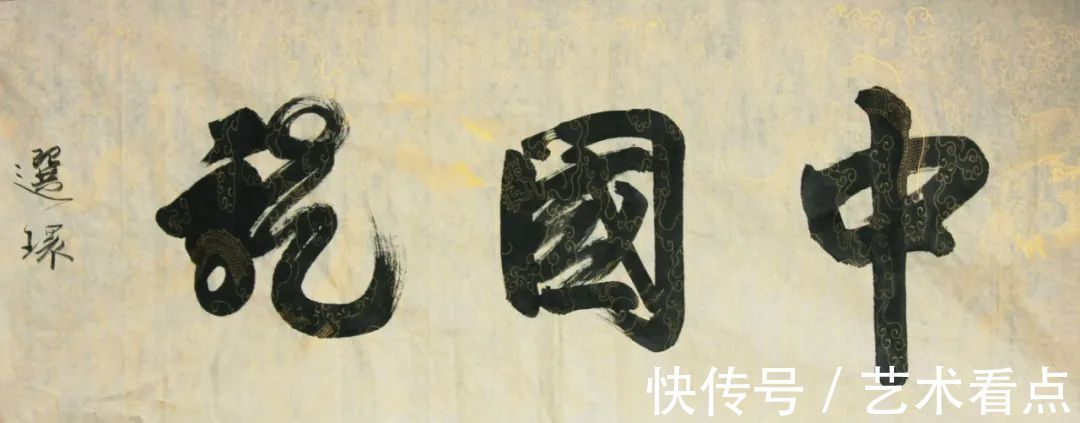 中國龍
選環
快传号 / 艺术看点